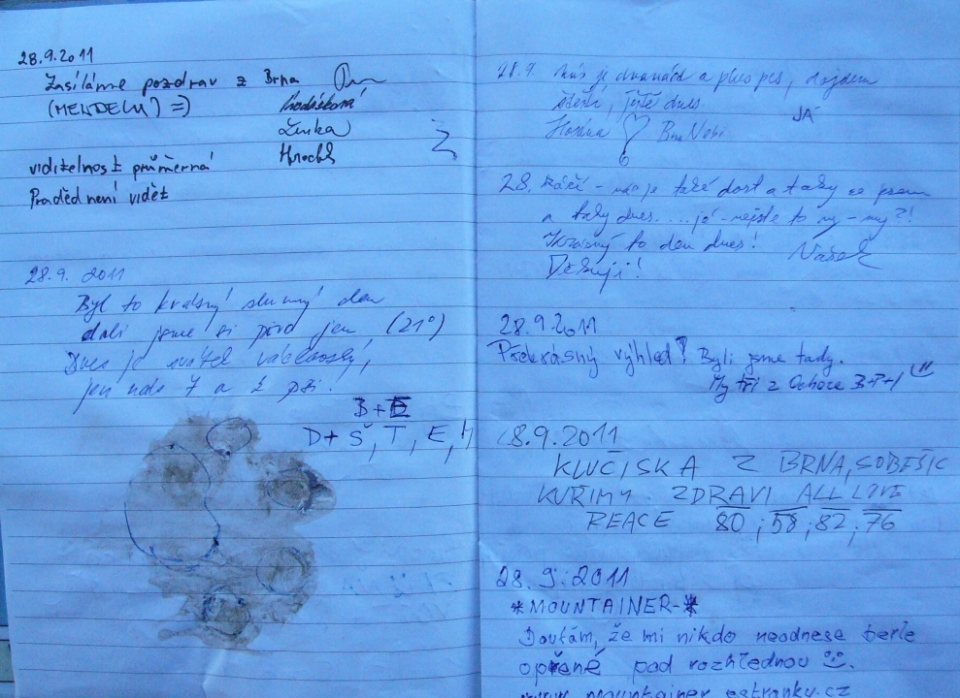 28.9.2011
Zasíláme pozdrav z Brna
(MENDELU) =)
Lenka
viditelnost průměrná
Praděd není vidět
28.9. 2011
Byl to krásný slunný den
dali jsme si pivo jen (21°)
Dnes je svátek václavský,
jen nás 7 a 2 psi!
B+E
D+ Š, T, E, H
28.9. nás je dvanáct a plus pes,
štěstí, ještě dnes
JÁ
28. - nás je také dost a taky se psem
a taky dnes.... já - nejste to vy - my?!
Krásný to den dnes!
Děkuji!
28.9.2011
Překrásný výhled! Byli jsme tady.
My tři z Ochoze B+P+I
28.9.2011
KLUČISKA Z BRNA, SOBĚŠIC
KUŘIMY. ZDRAVI ALL LOVE
PEACE 80, 58, 82, 76
28.9.2011
*MOUNTAINER-*
Doufám, že mi nikdo neodnese berle
opřené pod rozhlednou
www.mountainer.estranky.cz